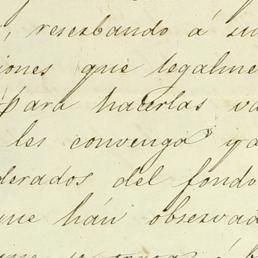 , reserbando á su
iones que legalme
para hacerlas va
les convenga ya
derados del fondo
que hán observad